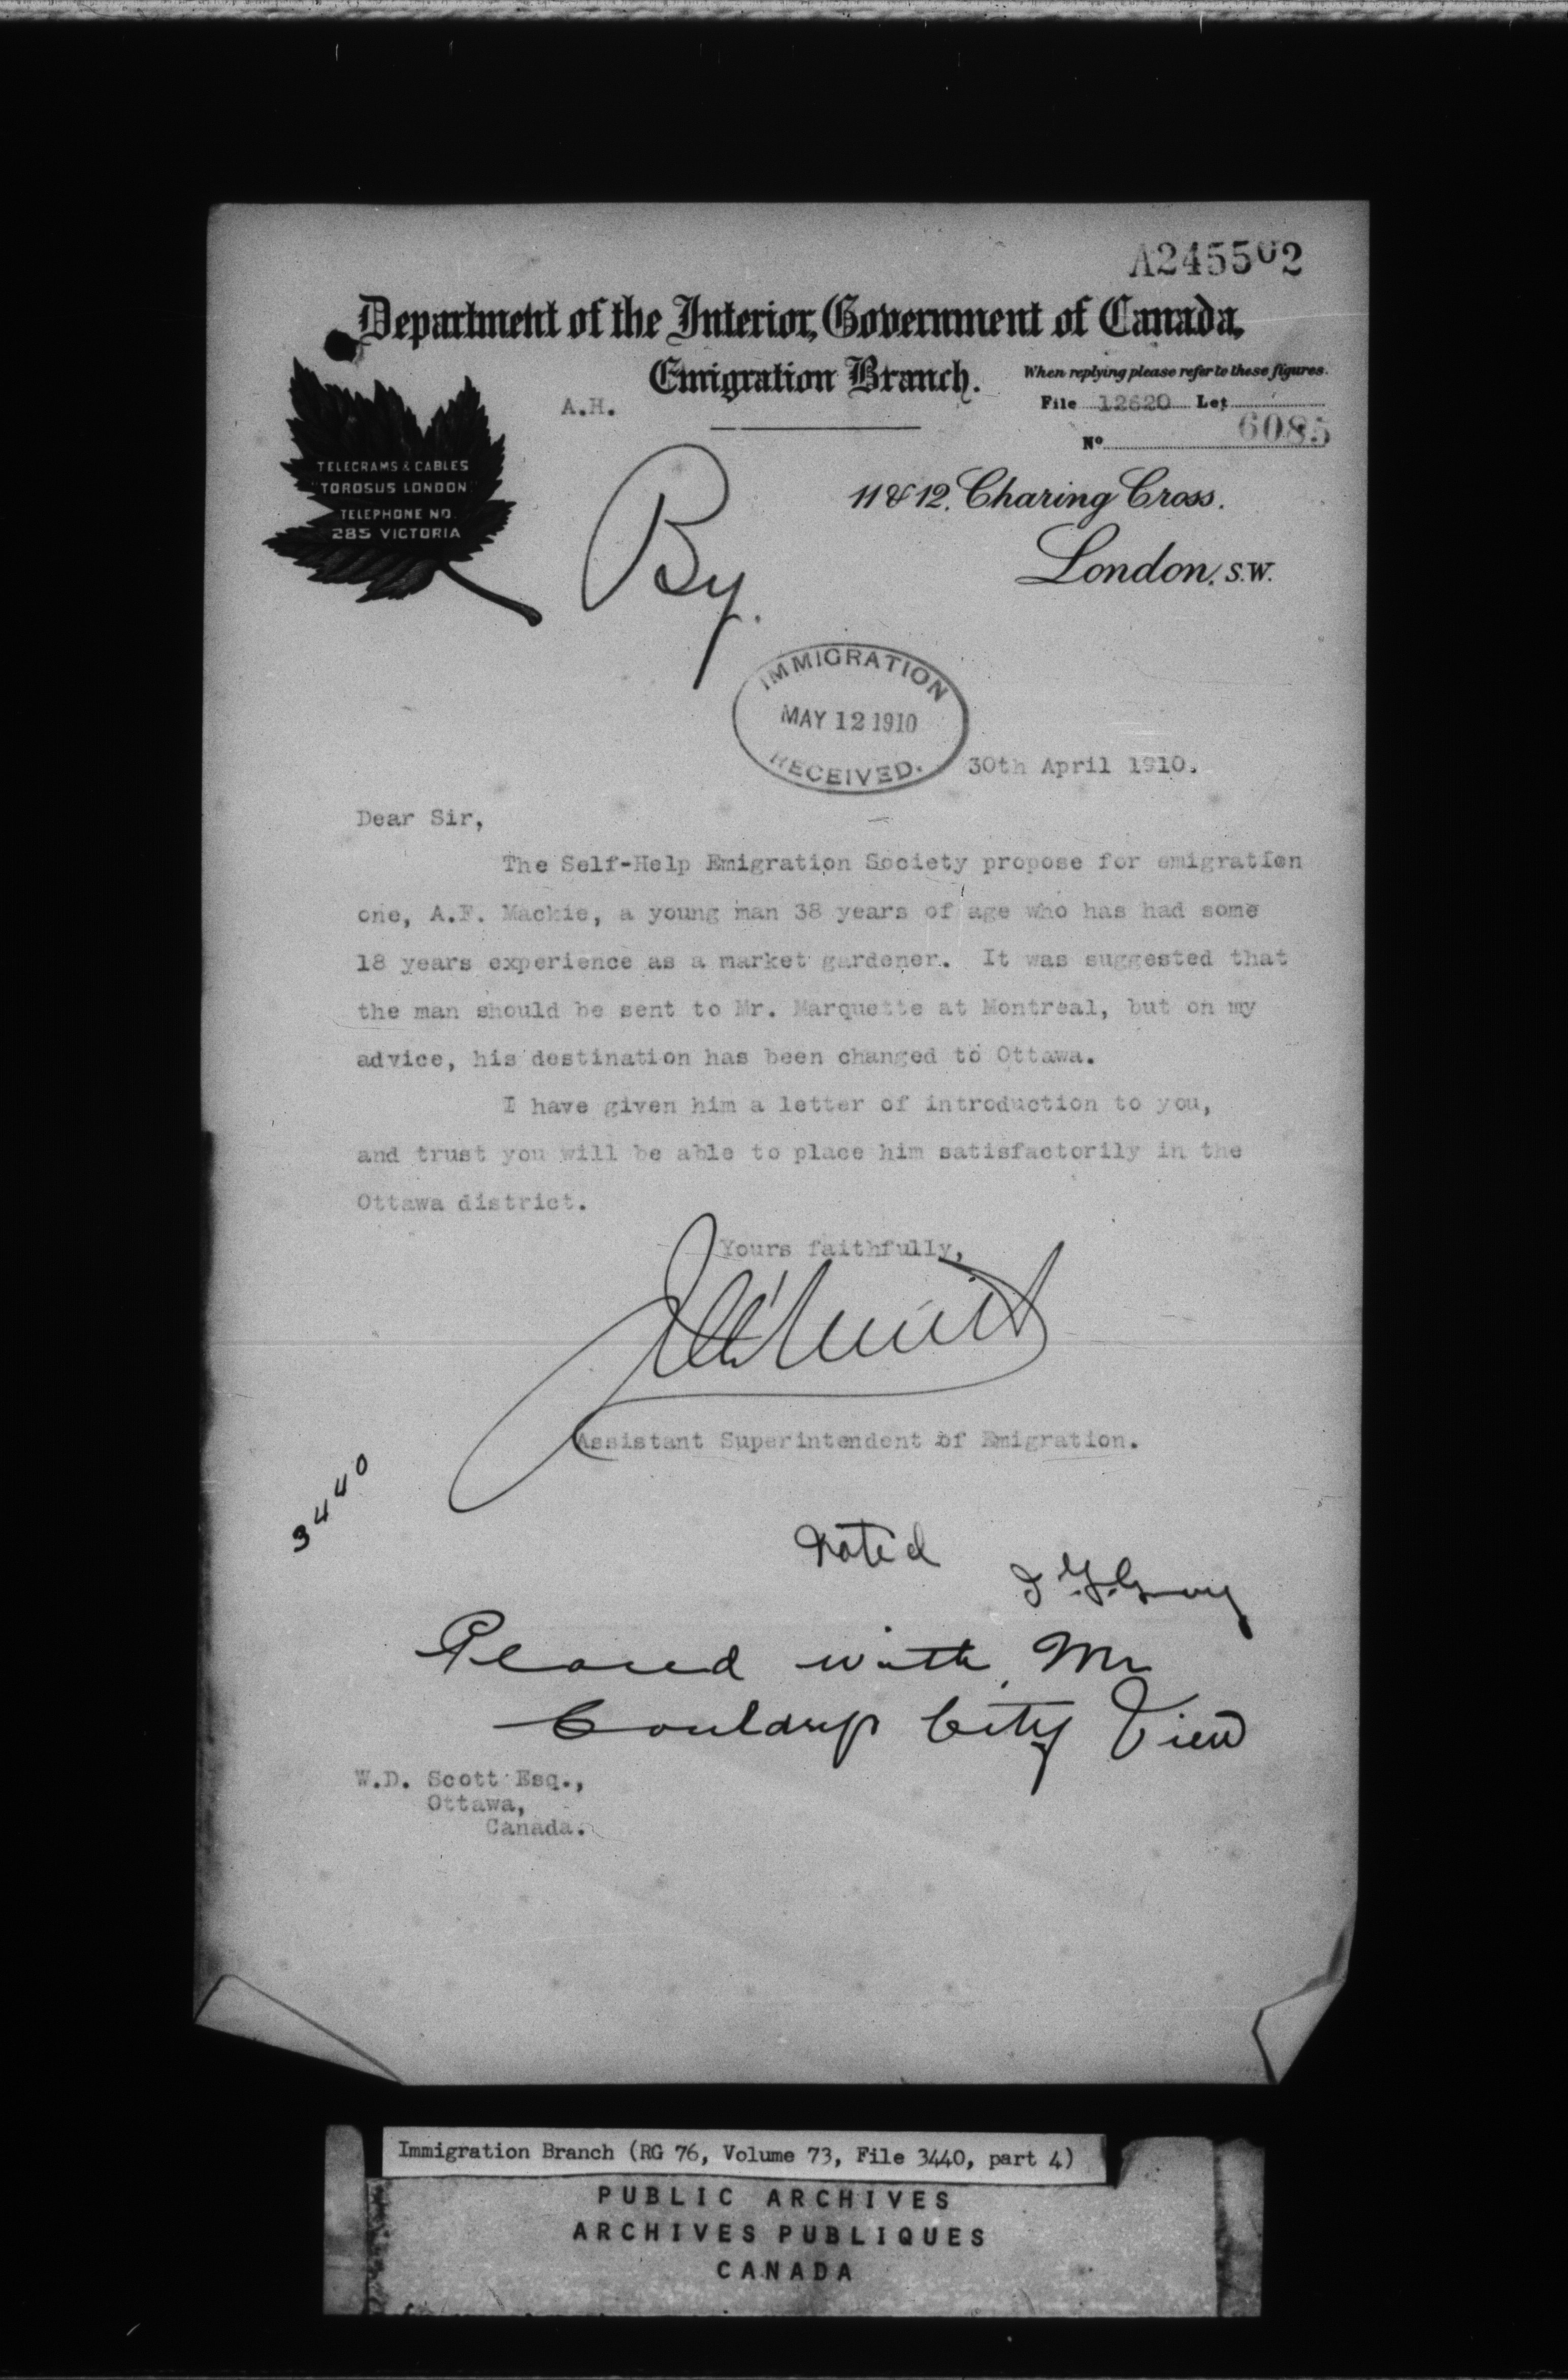 A245502
Department of the Interior, Government of Canada,
Emigration Branch.
When replying please refer to these figures.
A.H.
File 12620 Let
No 6085
TELEGRAMS & CABLES
"TOROSUS LONDON"
TELEPHONE NO.
285 VICTORIA
11 & 12, Charing Cross.
London, S.W.
By.
IMMIGRATION
MAY 12 1910
RECEIVED.
30th April 1910.
Dear Sir,
The Self-Help Emigration Society propose for emigration
one, A.F. Mackie, a young man 38 years of age who has had some
18 years experience as a market gardener. It was suggested that
the man should be sent to Mr. Marquette at Montreal, but on my
advice, his destination has been changed to Ottawa.
I have given him a letter of introduction to you,
and trust you will be able to place him satisfactorily in the
Ottawa district.
Yours faithfully,
Assistant Superintendent of Emigration.
3440
Noted
Placed with Mr
City View
W.D. Scott Esq.,
Ottawa,
Canada.
Immigration Branch (RG 76, Volume 73, File 3440, part 4)
PUBLIC ARCHIVES
ARCHIVES PUBLIQUES
CANADA